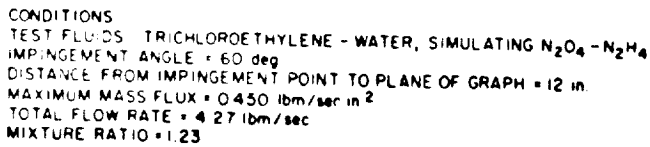 CONDITIONS
TEST FLUIDS TRICHLOROETHYLENE - WATER, SIMULATING N2O4 - N2H4
IMPINGEMENT ANGLE = 60 deg
DISTANCE FROM IMPINGEMENT POINT TO PLANE OF GRAPH = 12 in.
MAXIMUM MASS FLUX = 0.450 lbm/sec in2
TOTAL FLOW RATE = 4.27 lbm/sec
MIXTURE RATIO = 1.23